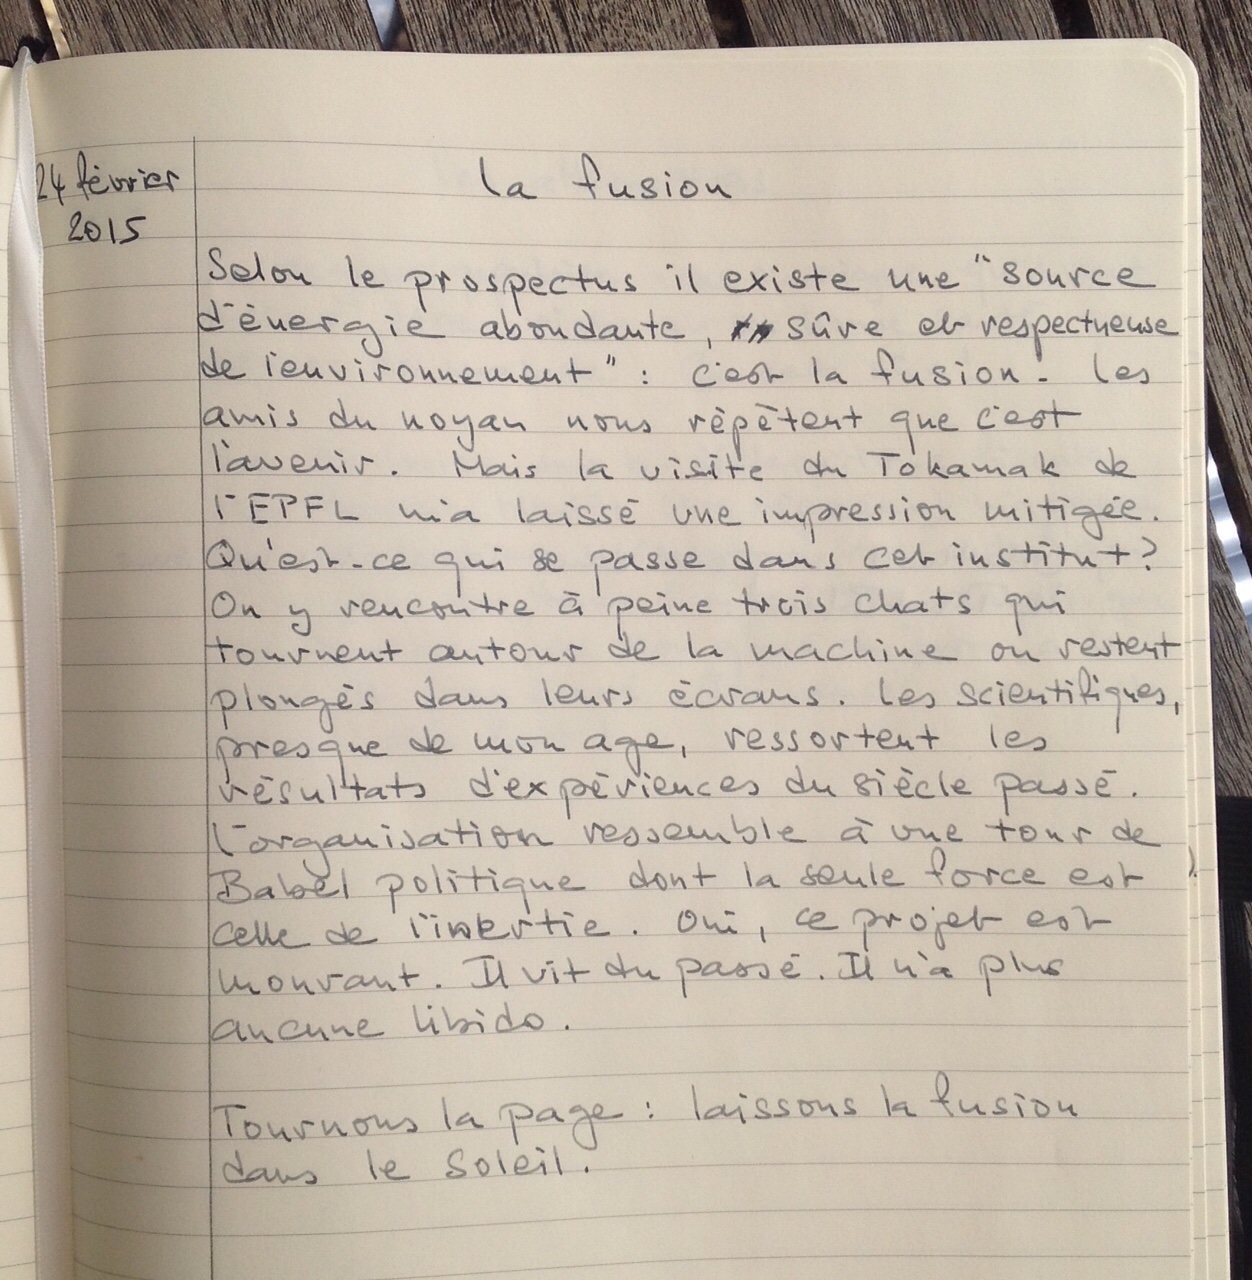 24 février
2015
la fusion
Selon le prospectus il existe une "source
d'énergie abondante, sûre et respectueuse
de l'environnement" : c'est la fusion. Les
amis du noyau nous répètent que c'est
l'avenir. Mais la visite du Tokamak de
l'EPFL m'a laissé une impression mitigée.
Qu'est-ce qui se passe dans cet institut?
On y rencontre à peine trois chats qui
tournent autour de la machine ou restent
plongés dans leurs écrans. Les scientifiques,
presque de mon age, ressortent les
résultats d'expériences du siècle passé.
L'organisation ressemble à une tour de
Babel politique dont la seule force est
celle de l'inertie. Oui, ce projet est
mourant. Il vit du passé. Il n'a plus
aucune libido.
Tournons la page : laissons la fusion
dans le soleil.